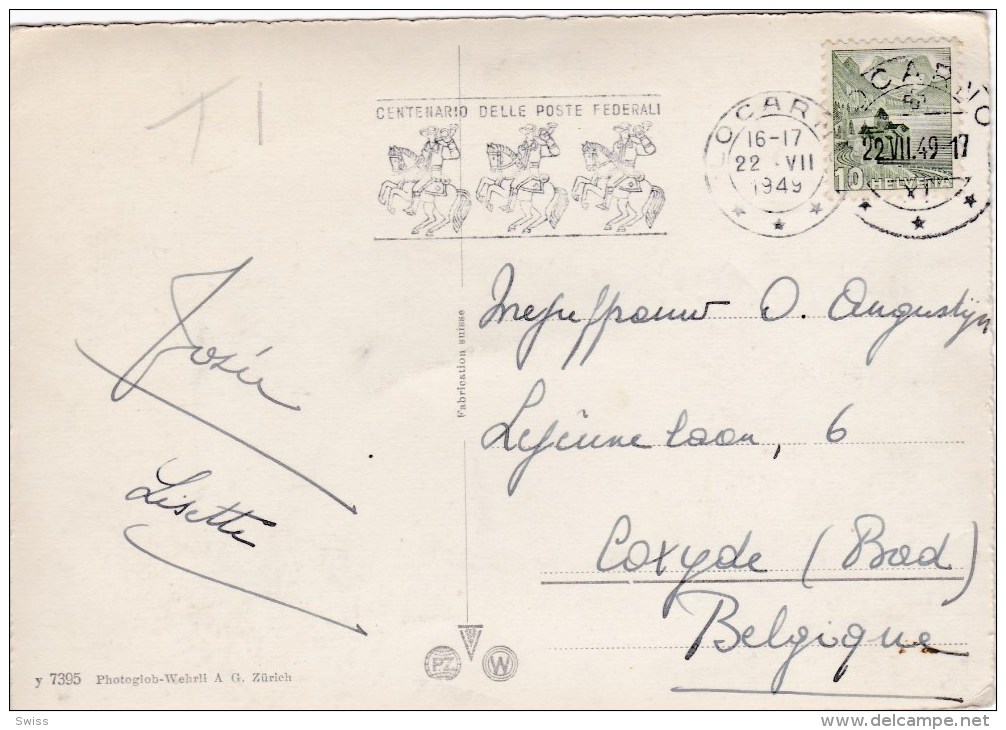 CENTENARIO DELLE POSTE FEDERALI
LOCARNO
16-17
22 · VII
1949
LOCARNO
22.VII.49-17
XI
10 HELVETIA
Mejuffrouw O. Augustijn
Lejeune laan, 6
Coxyde (Bad)
Belgique
Josée
Lisette
Fabrication suisse
PZ
W
y 7395 Photoglob-Wehrli A G. Zürich
Swiss
www.delcampe.net